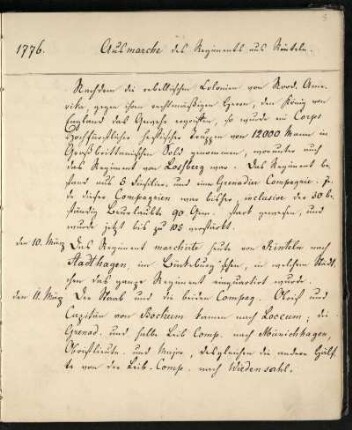 3
1776. Ausmarche des Regiments aus Rinteln.
Nachdem die rebellischen Colonien von Nord-Ame-
rika, gegen ihren rechtmäßigen Herrn, den König von
England das Gewehr ergriffen, so wurde ein Corps
Hochfürstlicher hessischer Truppen von 12000 Mann in
Großbrittannischen Sold genommen, worunter auch
das Regiment von Lossberg war. Das Regiment be-
stand aus 5 Füsilier- und eine Grenadier Compagnie. Je-
de dieser Compagnien war bisher, inclusive der 30 be-
ständig Beurlaubte 90 Gem. stark gewesen, und
wurde jetzt bis zu 98 verstärkt.
den 10. März Das Regiment marchirte heute von Rinteln nach
Stadthagen, im Bückeburg'schen, in welchen Städt-
chen das ganze Regiment einquartirt wurde.
den 11. März Der Staab und die beiden Compag. Obrist und
Capitän von Bochum kamen nach Loccum; die
Grenad. und halbe Leib Comp. nach Münichhagen,
Obristlieut. und Major, desgleichen die andere Hälf-
te von der Leib-Comp. nach Wiedensahl.